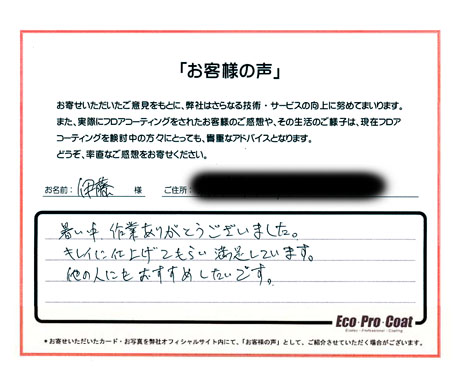 「お客様の声」
お寄せいただいたご意見をもとに、弊社はさらなる技術・サービスの向上に努めてまいります。
また、実際にフロアコーティングをされたお客様のご感想や、その生活のご様子は、現在フロア
コーティングを検討中の方々にとっても、貴重なアドバイスとなります。
どうぞ、率直なご感想をお寄せください。
お名前: 伊藤 様 ご住所:
暑い中、作業ありがとうございました。
キレイに仕上げてもらい満足しています。
他の人にもおすすめしたいです。
Eco・Pro・Coat
Ecology・Professional・Coating
*お寄せいただいたカード・お写真を弊社オフィシャルサイト内にて、「お客様の声」として、ご紹介させていただく場合がございます。